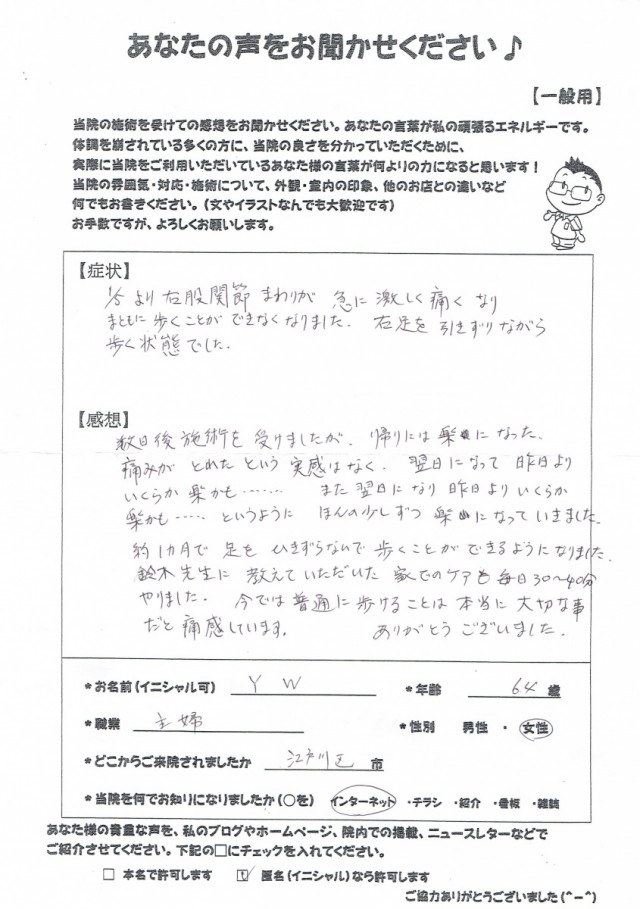 あなたの声をお聞かせください♪
【一般用】
当院の施術を受けての感想をお聞かせください。あなたの言葉が私の頑張るエネルギーです。
体調を崩されている多くの方に、当院の良さを分かっていただくために、
実際に当院をご利用いただいているあなた様の言葉が何よりの力になると思います！
当院の雰囲気・対応・施術について、外観・室内の印象、他のお店との違いなど
何でもお書きください。（文やイラストなんでも大歓迎です）
お手数ですが、よろしくお願いします。
【症状】
1/5より右股関節まわりが急に激しく痛くなり
まともに歩くことができなくなりました。右足を引きずりながら
歩く状態でした。
【感想】
数日後施術を受けましたが、帰りには楽になった、
痛みがとれたという実感はなく、翌日になって昨日より
いくらか楽かも……… また翌日になり昨日よりいくらか
楽かも…… というように ほんの少しずつ楽になっていきました。
約1カ月で足をひきずらないで歩くことができるようになりました。
鈴木先生に教えていただいた家でのケアも毎日30〜40分
やりました。今では普通に歩けることは本当に大切な事
だと痛感しています。 ありがとうございました。
*お名前（イニシャル可） Y W *年齢 64 歳
*職業 主婦 *性別 男性 ・ 女性
*どこからご来院されましたか 江戸川区 市
*当院を何でお知りになりましたか（○を） インターネット ・チラシ ・紹介 ・看板 ・雑誌
あなた様の貴重な声を、私のブログやホームページ、院内での掲載、ニュースレターなどで
ご紹介させてください。下記の□にチェックを入れてください。
□ 本名で許可します ☑ 匿名（イニシャル）なら許可します
ご協力ありがとうございました（^ー^）